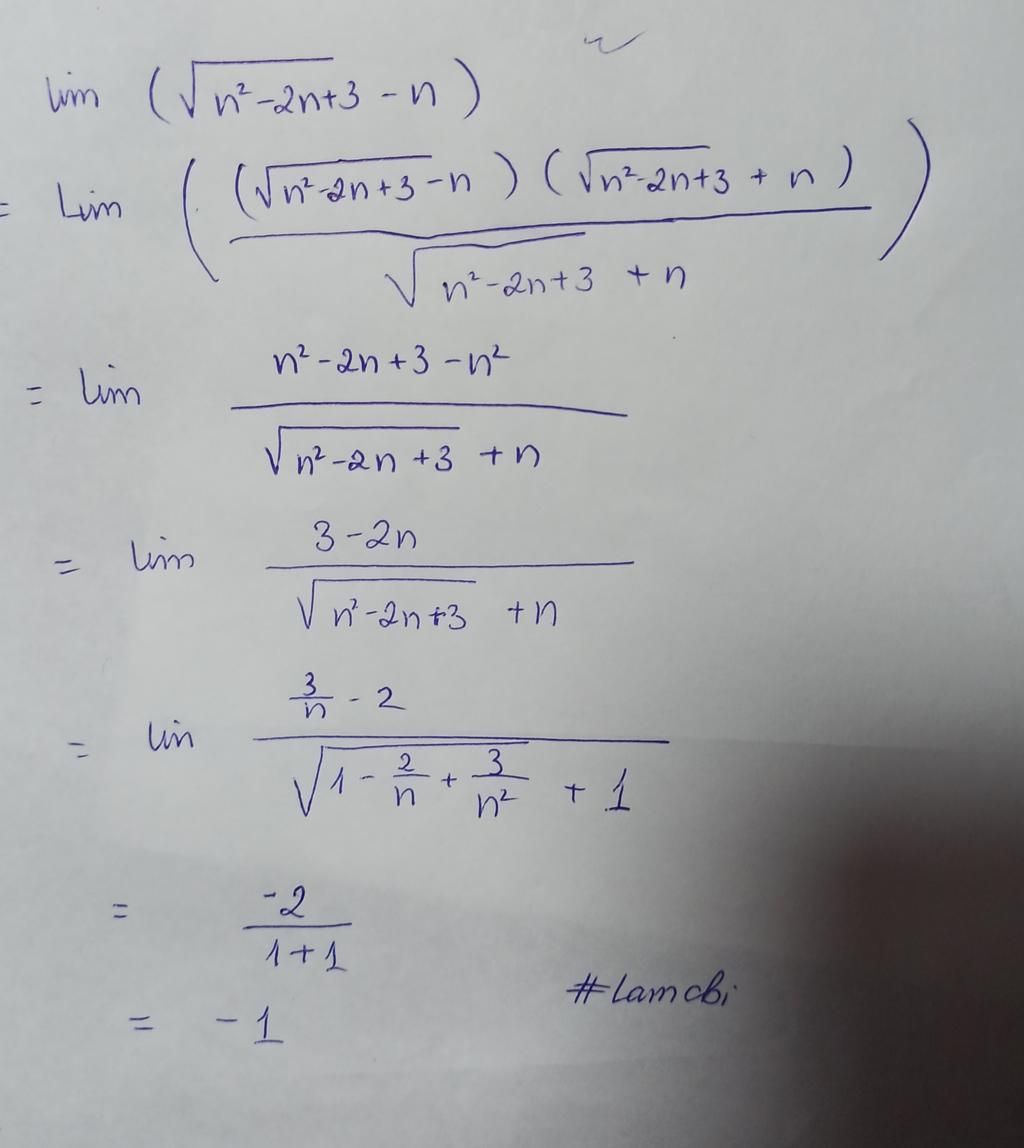 lim (√(n²-2n+3) - n)
= Lim ( ((√(n²-2n+3) - n) (√(n²-2n+3) + n)) / (√(n²-2n+3) + n) )
= lim (n²-2n+3-n²) / (√(n²-2n+3) + n)
= lim (3-2n) / (√(n²-2n+3) + n)
= lin (3/n - 2) / (√(1 - 2/n + 3/n²) + 1)
= -2 / (1+1)
= -1
#Lamcbi